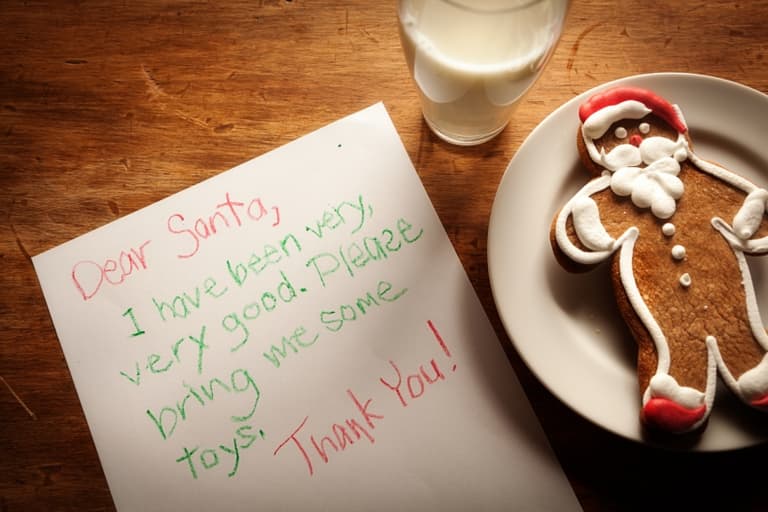 Dear Santa,
I have been very,
very good. Please
bring me some
toys.
Thank You!